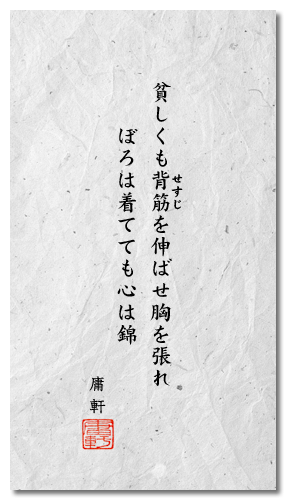 貧しくも背筋を伸ばせ胸を張れ
せすじ
ぼろは着てても心は錦
庸軒